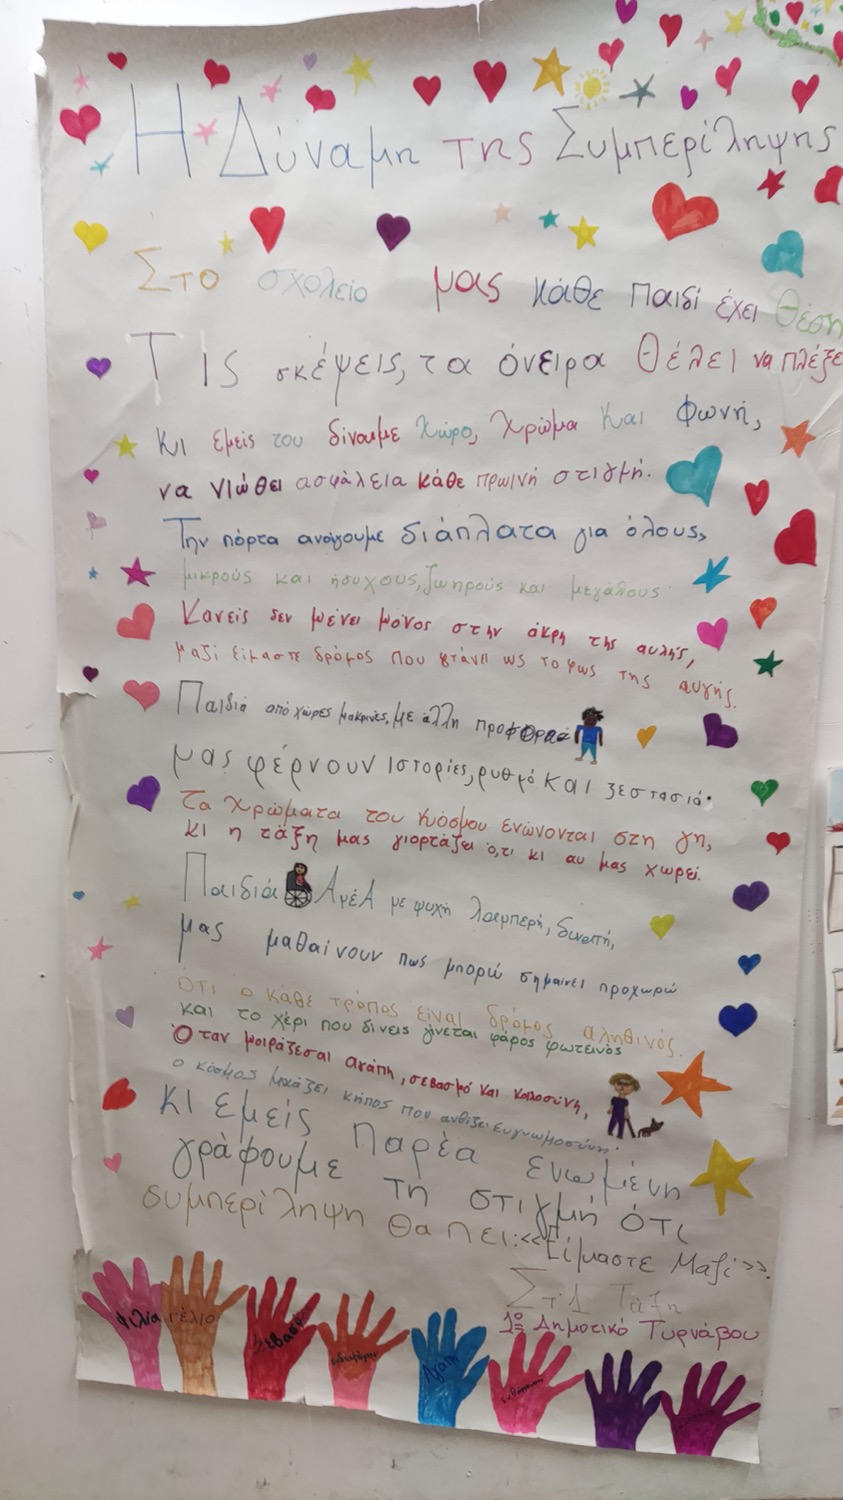 Η Δύναμη της Συμπερίληψης
Στο σχολείο μας κάθε παιδί έχει θέση
Τις σκέψεις, τα όνειρα θέλει να πλέξε
κι εμείς του δίνουμε χώρο, χρώμα και φωνή,
να νιώθει ασφάλεια κάθε πρωινή στιγμή.
Την πόρτα ανοίγουμε διάπλατα για όλους,
μικρούς και ήσυχους, ζωηρούς και μεγάλους
Κανείς δεν μένει μόνος στην άκρη της αυλής,
μαζί είμαστε δρόμος που φτάνει ως το φως της αυγής.
Παιδιά από χώρες μακρινές, με άλλη προφορά
μας φέρνουν ιστορίες, ρυθμό και ζεστασιά.
Τα χρώματα του κόσμου ενώνονται στη γη,
κι η τάξη μας γιορτάζει ό,τι κι αν μας χωρεί.
Παιδιά ΑμέΑ με ψυχή λαμπερή, δυνατή,
μας μαθαίνουν πως μπορώ σημαίνει προχωρώ
ότι ο κάθε τρόπος είναι δρόμος αληθινός.
και το χέρι που δίνεις γίνεται φάρος φωτεινός
Όταν μοιράζεσαι αγάπη, σεβασμό και καλοσύνη,
ο κόσμος μοιάζει κήπος που ανθίζει ευγνωμοσύνη.
κι εμείς παρέα ενωμένη
γράφουμε τη στιγμή ότι
συμπερίληψη θα πει: «Είμαστε Μαζί».
Στ1 Τάξη
1ο Δημοτικό Τυρνάβου
Φιλία
γέλιο
Σεβασμό
Αγάπη